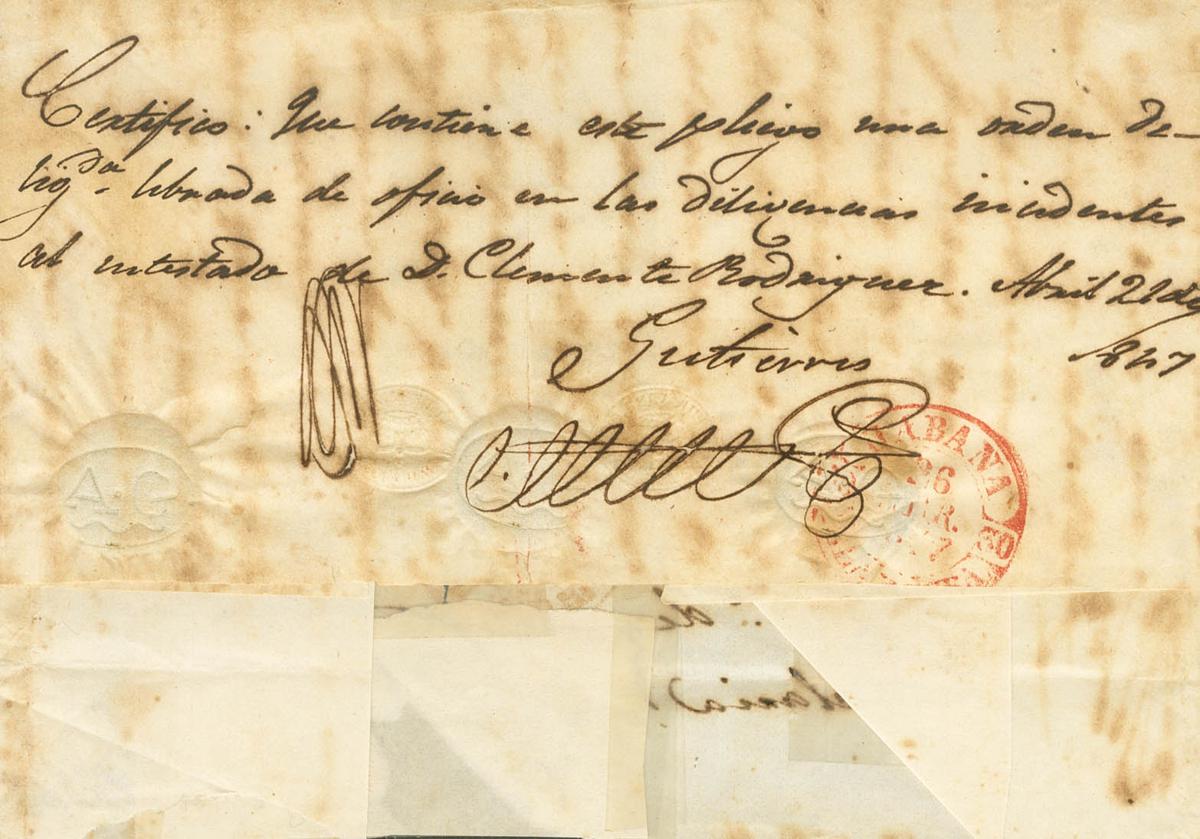 Certifico: Que contiene este pliego una orden De-
lig.da librada de oficio en las diligencias incidentes
al intestado de D. Clemente Rodriguez. Abril 21 de
Gutierres 1847
A.C
HABANA
26